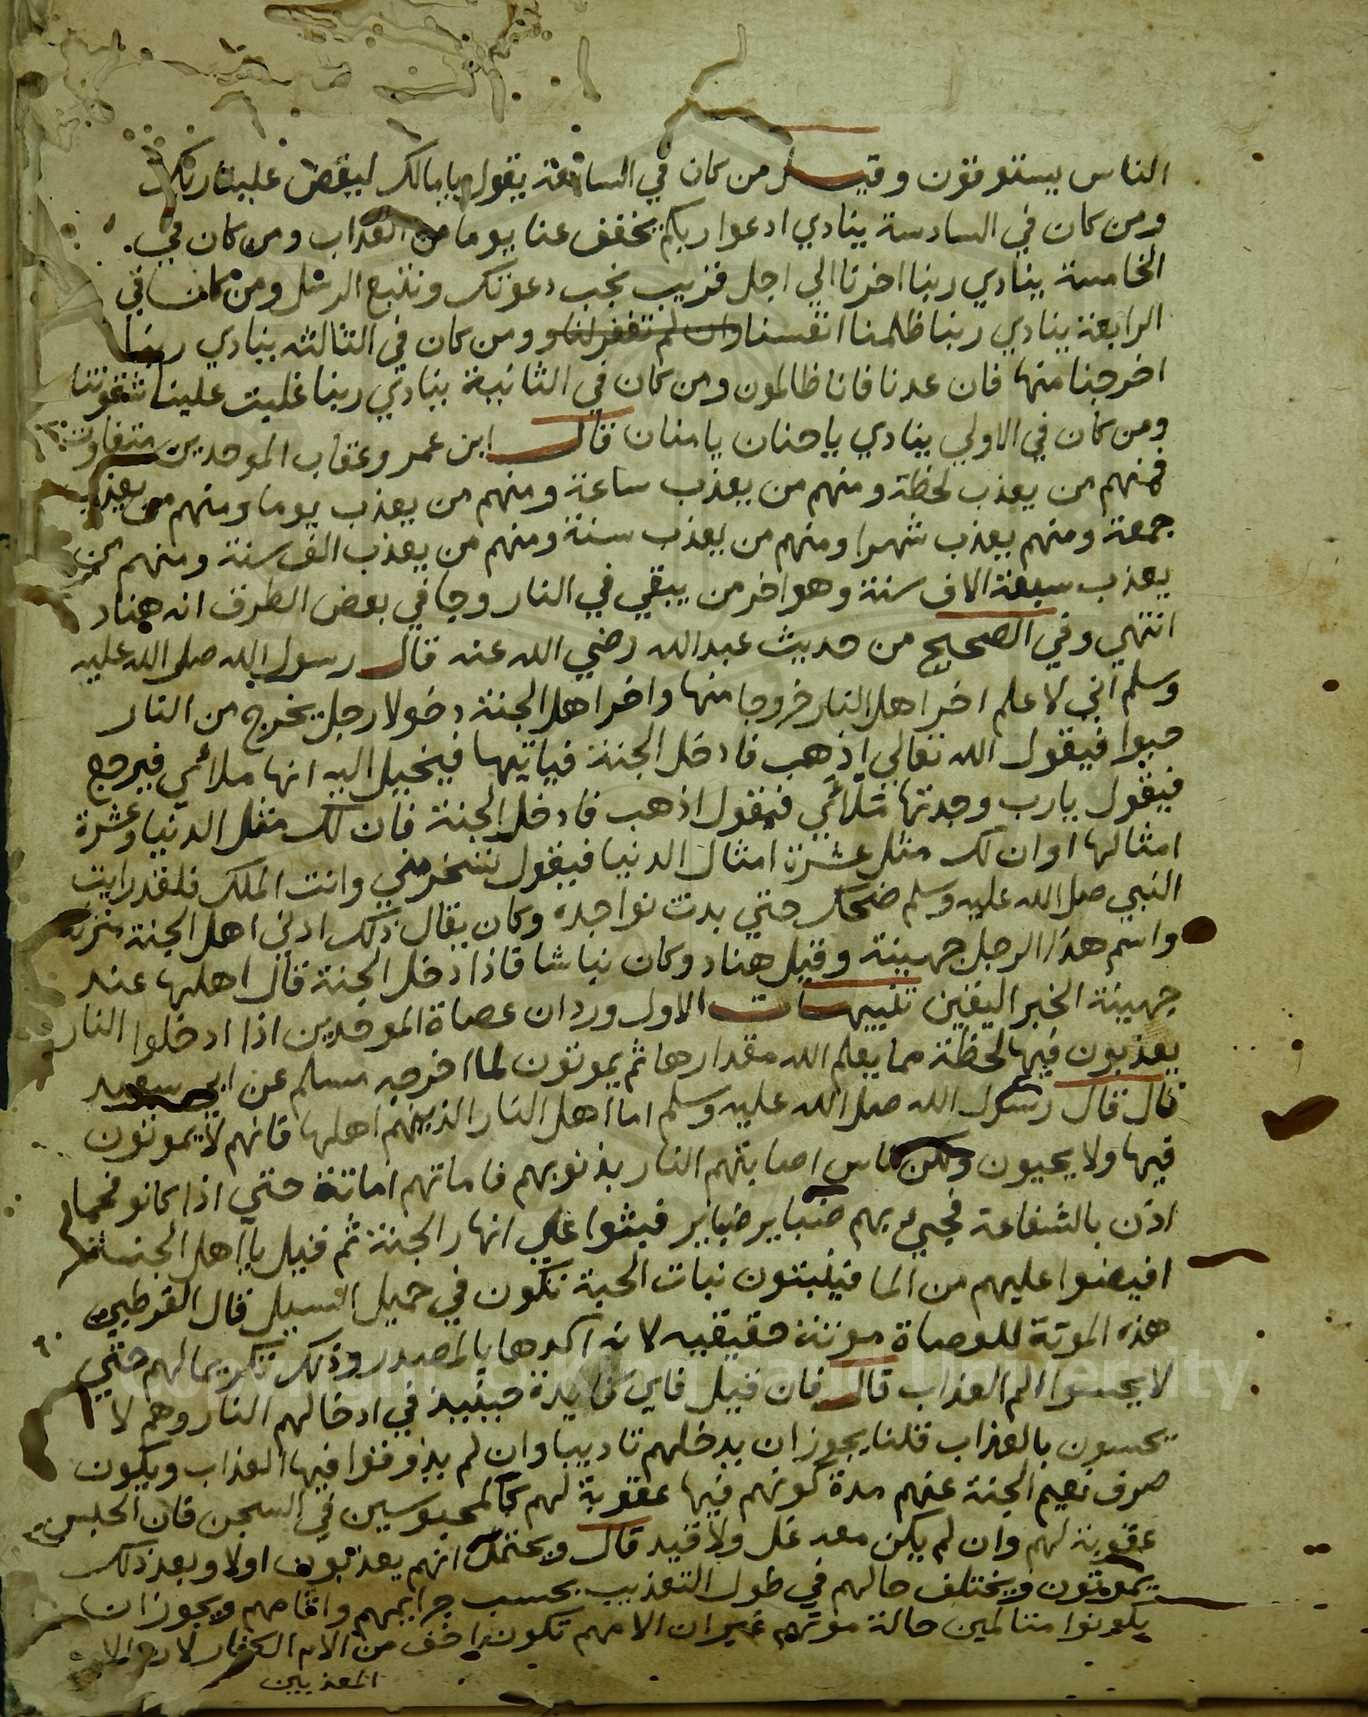 الناس يستغوثون وقيل من كان في السابعة يقول يا مالك ليقض علينا ربك
ومن كان في السادسة ينادي ادعوا ربكم يخفف عنا يوما من العذاب ومن كان في
الخامسة ينادي ربنا اخرنا الي اجل قريب نجب دعوتك ونتبع الرسل ومن كان في
الرابعة ينادي ربنا ظلمنا انفسنا وان لم تغفر لنا ومن كان في الثالثه ينادي ربنا
اخرجنا منها فان عدنا فانا ظالمون ومن كان في الثانية ينادي ربنا غلبت علينا شقوتنا
ومن كان في الاولي ينادي يا حنان يا منان قال ابن عمر وعقاب الموحدين متفاوت
فمنهم من يعذب لحظة ومنهم من يعذب ساعة ومنهم من يعذب يوما ومنهم من يعذب
جمعة ومنهم يعذب شهرا ومنهم من يعذب سنة ومنهم من يعذب الف سنة ومنهم من
يعذب سبعة الاف سنة وهو اخر من يبقي في النار وجا في بعض الطرق انه هناد
انتهي وفي الصحيح من حديث عبد الله رضي الله عنه قال رسول الله صلى الله عليه
وسلم اني لاعلم اخر اهل النار خروجا منها واخر اهل الجنة دخولا رجل يخرج من النار
حبوا فيقول الله تعالي اذهب فادخل الجنة فياتيها فيخيل اليه انها ملائي فيرجع
فيقول يا رب وجدتها ملائي فيقول اذهب فادخل الجنة فان لك مثل الدنيا وعشرة
امثالها او ان لك مثل عشرة امثال الدنيا فيقول تسخر مني وانت الملك فلقد رايت
النبي صلى الله عليه وسلم ضحك حتي بدت نواجده وكان يقال ذلك ادني اهل الجنة منزلة
واسم هذا الرجل جهينة وقيل هناد وكان نباشا فاذا دخل الجنة قال اهلها عند
جهينة الخبر اليقين تنبيهات الاول ورد ان عصاة الموحدين اذا ادخلوا النار
يعذبون فيها لحظة مما يعلم الله مقدارها ثم يموتون لما اخرجه مسلم عن ابي سعيد
قال قال رسول الله صلى الله عليه وسلم اما اهل النار الذين هم اهلها فانهم لا يموتون
فيها ولا يحيون ولكن ناس اصابتهم النار بذنوبهم فاماتهم اماتة حتي اذا كانو فحما
اذن بالشفاعة فجيء بهم ضباير ضباير فبثوا علي انهار الجنة ثم قيل يا اهل الجنة
افيضوا عليهم من الما فينبتون نبات الحبة تكون في حميل السيل قال القرطبي
هذه الموتة للعصاة موتة حقيقيه لانه اكدها بالمصدر وذلك تكريما لهم حتي
لا يحسوا الم العذاب قال فان قيل فاي فايدة حينيذ في ادخالهم النار وهم لا
يحسون بالعذاب قلنا يجوز ان يدخلهم تاديبا وان لم يذوقوا فيها العذاب ويكون
صرف نعيم الجنة عنهم مدة كونهم فيها عقوبة لهم كالمحبوسين في السجن فان الحبس
عقوبة لهم وان لم يكن معه غل ولا قيد قال ويحتمل انهم يعذبون اولا وبعد ذلك
يموتون ويختلف حالهم في طول التعذيب بحسب جرايمهم واثامهم ويجوز ان
يكونوا متالمين حالة موتهم غير ان الامهم تكون اخف من الام الكفار لان
المعذبين